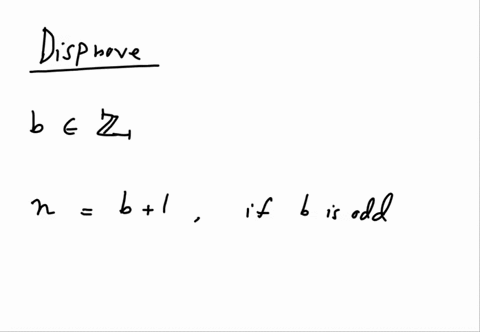 Disprove
b ∈ ℤ
n = b + 1 , if b is odd